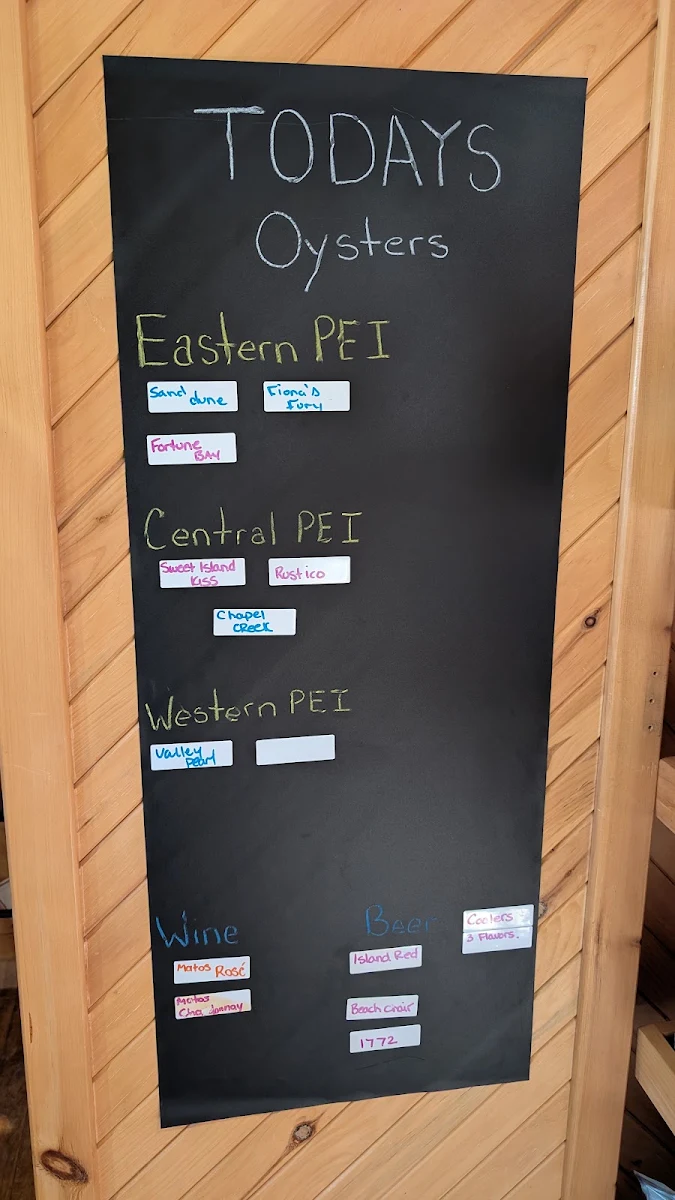 TODAYS
Oysters
Eastern PEI
Sand dune
Fiona's
Fury
Fortune
BAY
Central PEI
Sweet Island
Kiss
Rustico
Chapel
CREEK
Western PEI
Valley
Pearl
Wine
Beer
Coolers
3 Flavors.
Matos Rosé
Matos
Island Red
Beach Chair
1772